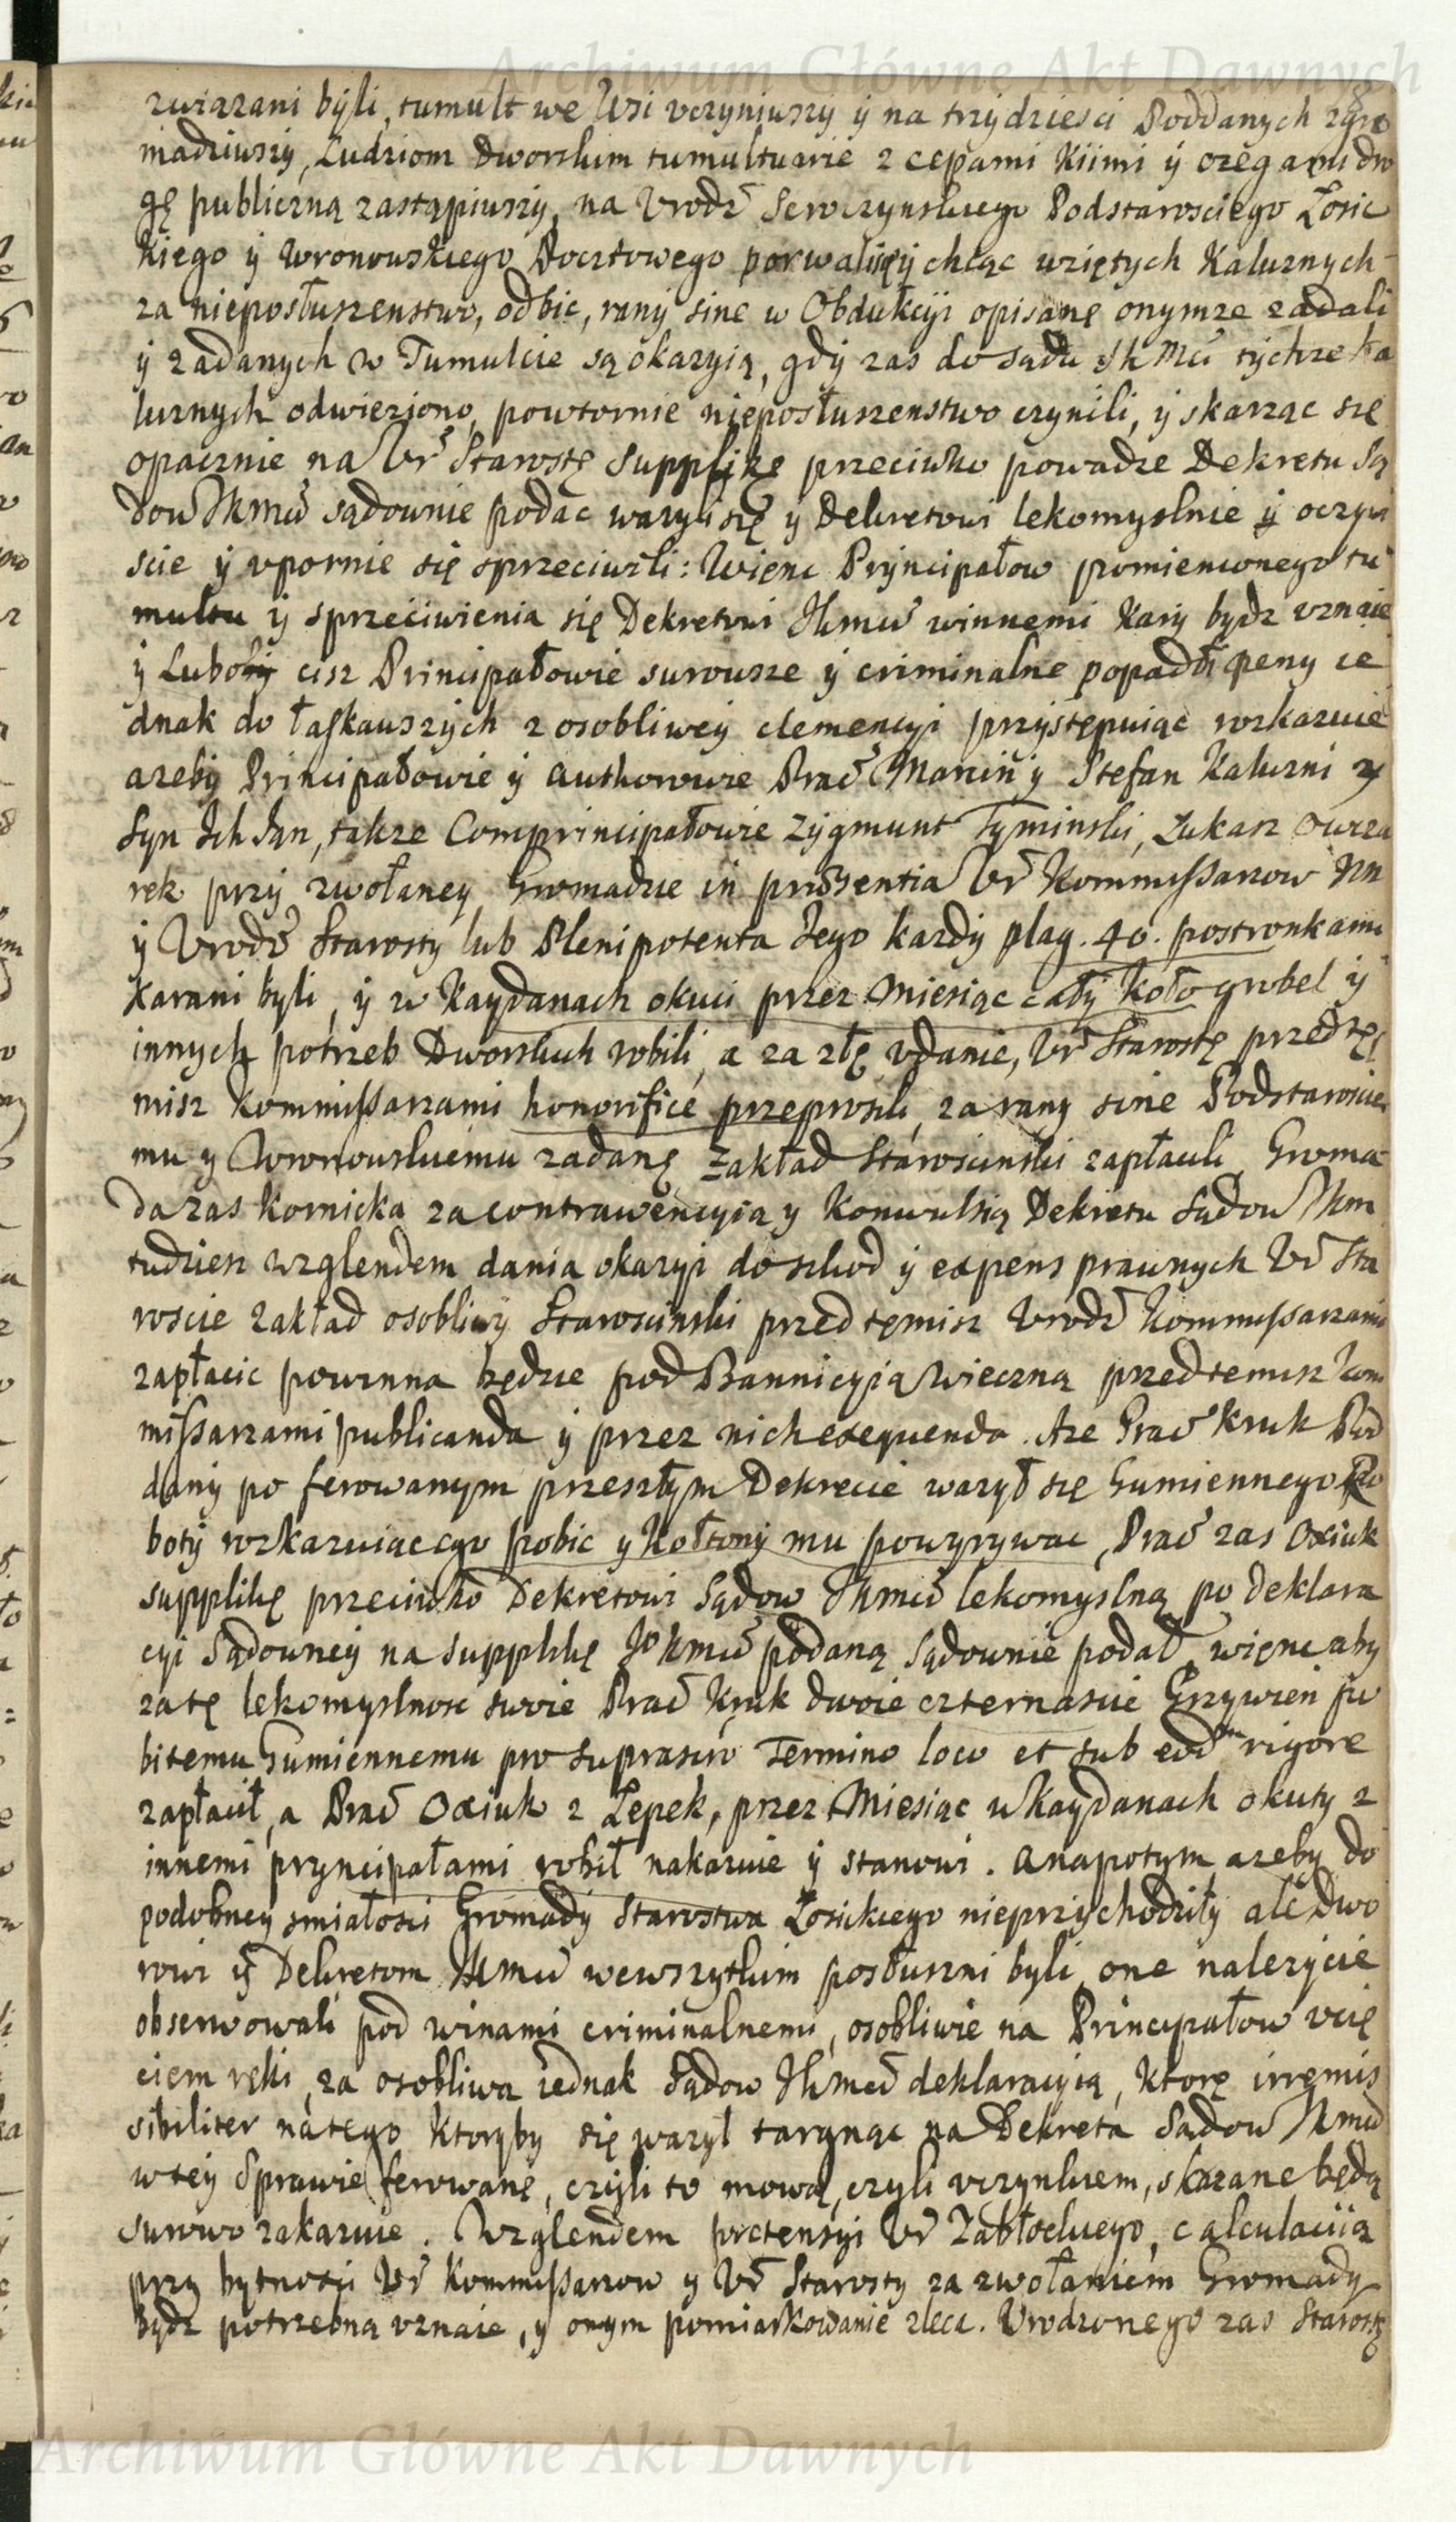 Archiwum Główne Akt Dawnych
związani byli, tumult we Wsi vczyniwszy y na trzydziesci Poddanych zgro
madziwszy, Ludziom Dworskim tumultuarie z cepami Kiimi y ozegami dro
gę publiczną zastąpiwszy, na Vrodz Serwczynskiego Podstarosciego Łosic
kiego y Wronowskiego Pocztowego porwalisięy chcąc wziętych Kaluznych
za nieposłuszenstwo, odbic, rany sine w Obdukcyi opisanę onymze zadali
y zadanych w Tumulcie są okazyią, gdy zas do sądu JKMci tychze Ka
luznych odwieziono, powtornie nieposłuszenstwo czynili, y skarząc się
opacznie na Vr Starostę Supplikę przeciwko powadze Dekretu Są
dow JKmci sądownie podac wazyli się y Dekretowi lekomyslnie y oczywi
scie y vpornie się sprzeciwili: Więnc Pryncipałow pomienionego tu
multu y sprzeciwienia się Dekretowi JKmci winnemi Kary bydz vznaie
y Lubo cisz Principałowie surowsze y criminalne popadli peny ie
dnak do łaskawszych z osobliwey clemencyi przystępuiąc rozkazuie
azeby Principałowie y Authorowie Prac Marcin y Stefan Kaluzni y
Syn Ich Jan, takze Comprincipałowie Zygmunt Tyminski, Łukasz Owcza
rek przy zwołaney Gromadzie in præsentia Vr Kommissarzow Nn
y Vrodz Starosty lub Plenipotenta Jego kazdy plag. 40. postronkami
karani byli, y w Kaydanach okuci przez Miesiąc cały koło grobel y
innych potrzeb Dworskich robili, a za złę vdanie, Vr Starostę przed tę
misz Kommissarzami honorifice przeprosili, za rany sine Podstaroscie
mu y Wronowskiemu zadanę zakład Starosciński zapłacili, Groma
da zas Kornicka za contrawencyią y Konwulsią Dekretu Sądow JKm
tudziesz względem dania okazyi do szkod y expens prawnych Vr Sta
roscie zakład osobliwy Starosciński przed tęmisz Vrodz Kommissarzami
zapłacic powinna będzie pod Bannicyią Wieczną przed temisz Kom
missarzami publicanda y przez nich exequenda. Aze Prac Kruk Pod
dany po ferowanym przeszłym Dekrecie wazył się Gumiennego Ro
boty rozkazuiącego pobic y Kołtony mu powyrywac, Prac zas Oxiuk
supplikę przeciwko Dekretowi Sądow JKmci lekomyslną po deklara
cyi Sądowney na supplikę JoKmci podaną sądownie podał, więnc aby
za tę lekomyslnosc swoie Prac Kruk dwoie czternascie Grzywien po
bitemu Gumiennemu pro suprascro Termino loco et sub eodm rigore
zapłacił, a Prac Oxiuk z Łepek, przez Miesiąc w Kaydanach okuty z
innemi pryncipałami robił nakazuie y stanowi. Anapotym azeby do
podobney smiałosci Gromady Starostwa Łosickiego nieprzychodziły ale Dwo
rowi y Dekretom JKmci wewszytkim posłuszni byli, one nalezycie
obserwowali pod winami criminalnemi, osobliwie na Principałow vcię
ciem ręki, za osobliwa iednak Sądow JKmci deklaracyią, ktorę irremis
sibiliter natego ktoryby się wazył targnąc na Dekreta Sądow JKmci
wtey Sprawie ferowanę, czyli to mową, czyli vczynkiem, skazane będą
surowo zakazuie. Względem pretensyi Vr Zabłockiego, calculaciią
przy bytnosci Vr Kommissarzow y Vr Starosty za zwołaniem Gromady
bydz potrzebną vznaie, y onym pomiarkowanie zleca. Vrodzonego zas Starostę
Archiwum Główne Akt Dawnych